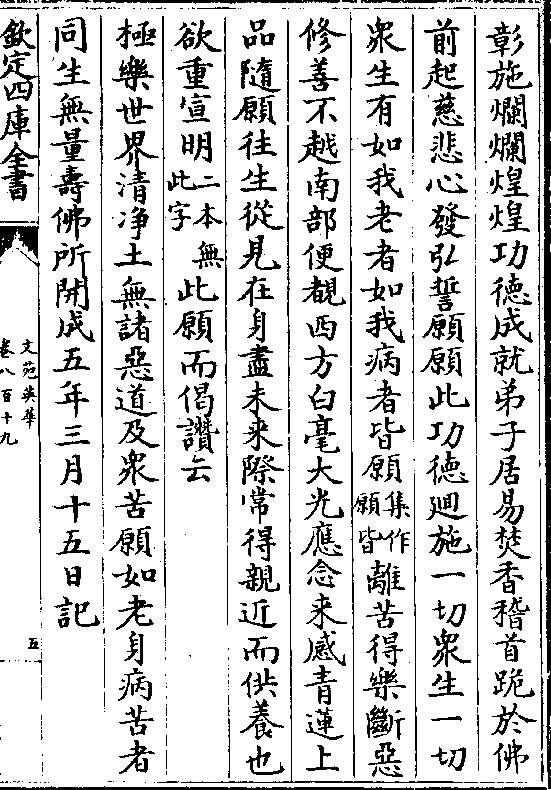 彰施爛爛煌煌功德成就弟子居易焚香稽首跪於佛
前起慈悲心發弘誓願願此功德廻施一切衆生一切
衆生有如我老者如我病者皆願集作願皆離苦得樂斷惡
修善不越南部便覩西方白毫大光應念来感青蓮上
品隨願往生從見在身盡未来際常得親近而供養也
欲重宣明二本無此字此願而偈讚云
極樂世界清浄土無諸惡道及衆苦願如老身病苦者
同生無量壽佛所開成五年三月十五日記
欽定四庫全書
文苑英華
卷八百十九
五